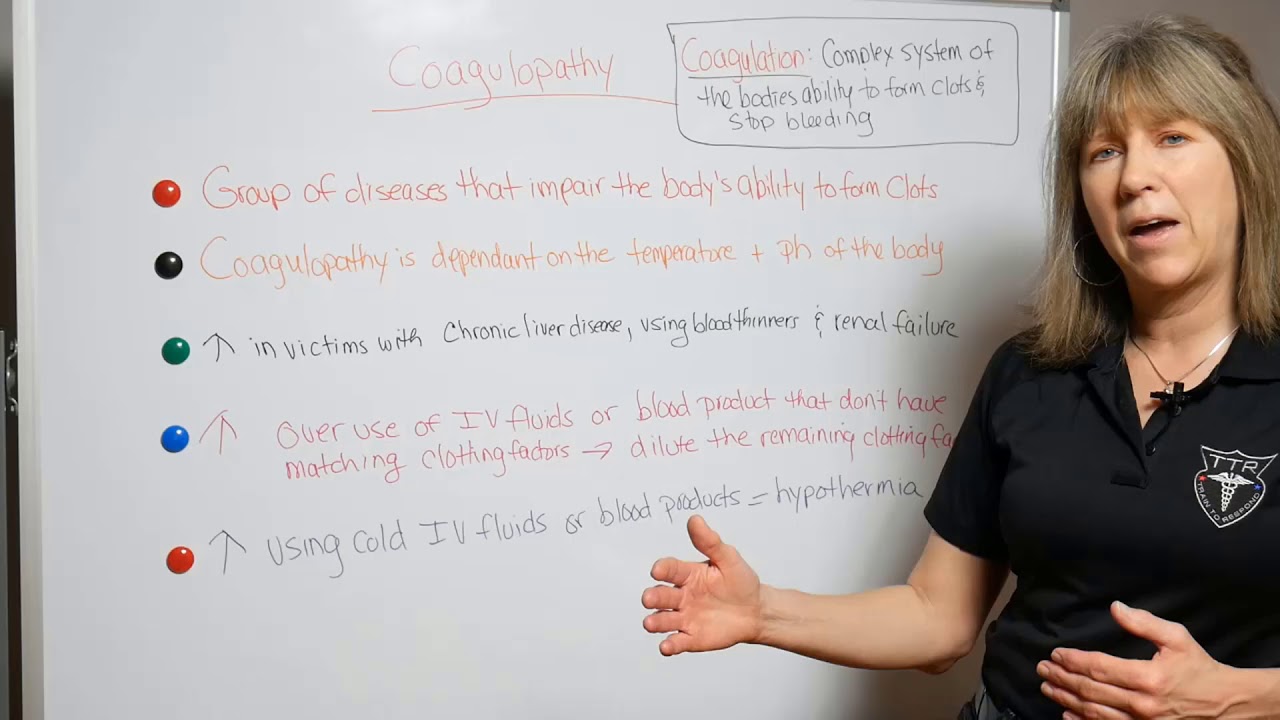 Coagulopathy
Coagulation: Complex system of
the bodies ability to form clots &
stop bleeding
Group of diseases that impair the body's ability to form Clots
Coagulopathy is dependant on the temperature + Ph of the body
↑ in victims with Chronic liver disease, using blood thinners & renal failure
↑ Over use of IV fluids or blood product that don't have
matching clotting factors → dilute the remaining clotting fa
↑ using cold IV fluids or blood products = hypothermia
TTR
TRAIN TO RESPOND